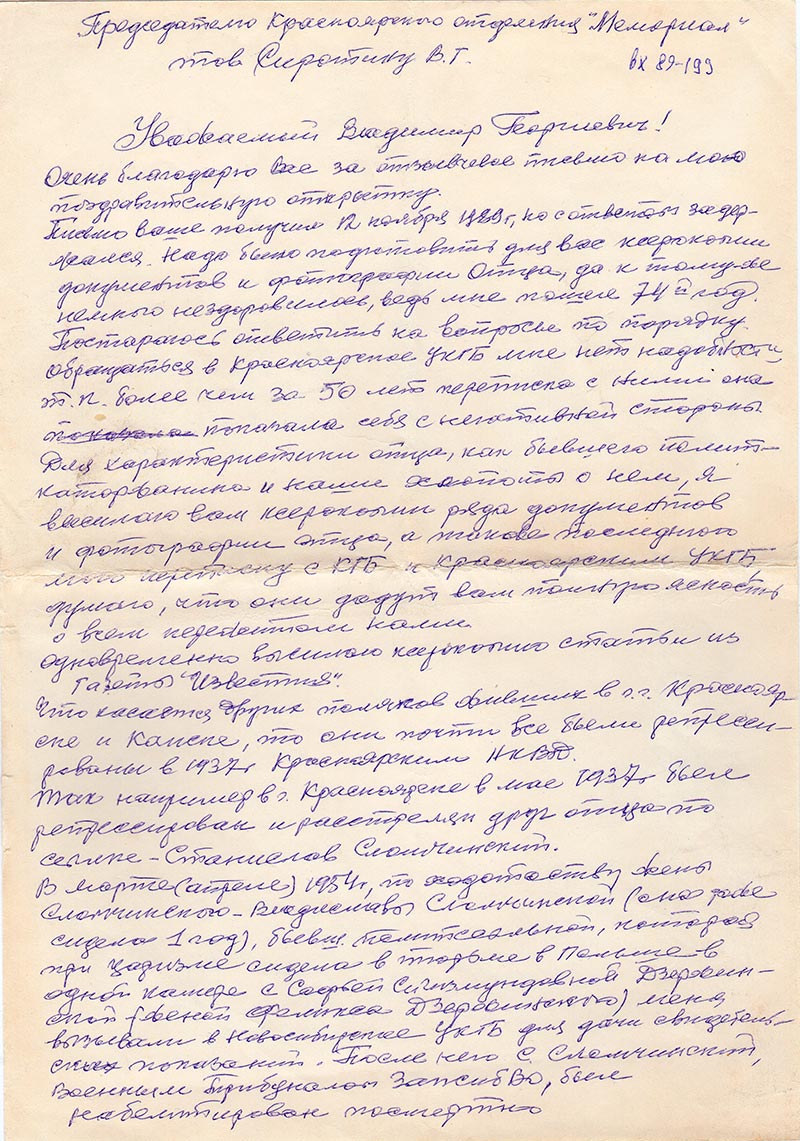 Председателю Красноярского отделения "Мемориал"
тов Сиротину В.Г.
вх 89-199
Уважаемый Владимир Георгиевич!
Очень благодарю Вас за отзывчевое письмо на мою
поздравительную открытку.
Письмо ваше получил 12 ноября 1989г, но с ответом задер-
жался. Надо было подготовить для вас ксерокопии
документов и фотографии Отца, да к тому-же
немного нездоровилось, ведь мне пошел 74й год.
Постараюсь ответить на вопросы по порядку.
Обращаться в Красноярское УКГБ мне нет надобности,
т.к. более чем за 50 лет переписка с ними она
показала показала себя с негативной стороны.
Для характеристики отца, как бывшего полит-
каторжанина и наши хлопоты о нем, я
высылаю вам ксерокопии ряда документов
и фотографии отца, а также последнюю
мою переписку с КГБ и Красноярским УКГБ
думаю, что они дадут вам полную ясность
о всем пережитом нами.
Одновременно высылаю ксерокопию статьи из
газеты "Известия".
Что касается других поляков живших в г.г. Краснояр-
ске и Канске, то они почти все были репресси-
рованы в 1937г Красноярским НКВД.
Так например в г. Красноярске в мае 1937г был
репрессирован и расстрелян друг отца по
ссылке - Станислав Сломчинский.
В марте (апреле) 1954г, по ходотаству жены
Сломчинского - Владиславы Сломчинской (она тоже
сидела 1 год), бывш. политссыльной, которая
при царизме сидела в тюрьме в Польше в
одной камере с Софьей Сигизмундовной Дзержин-
ской (женой Феликса Дзержинского) меня
вызывали в Новосибирское УКГБ для дачи свидетель-
ских показаний. После чего С. Сломчинский,
Военным Трибуналом ЗапсибВо, был
реабелитирован посмертно